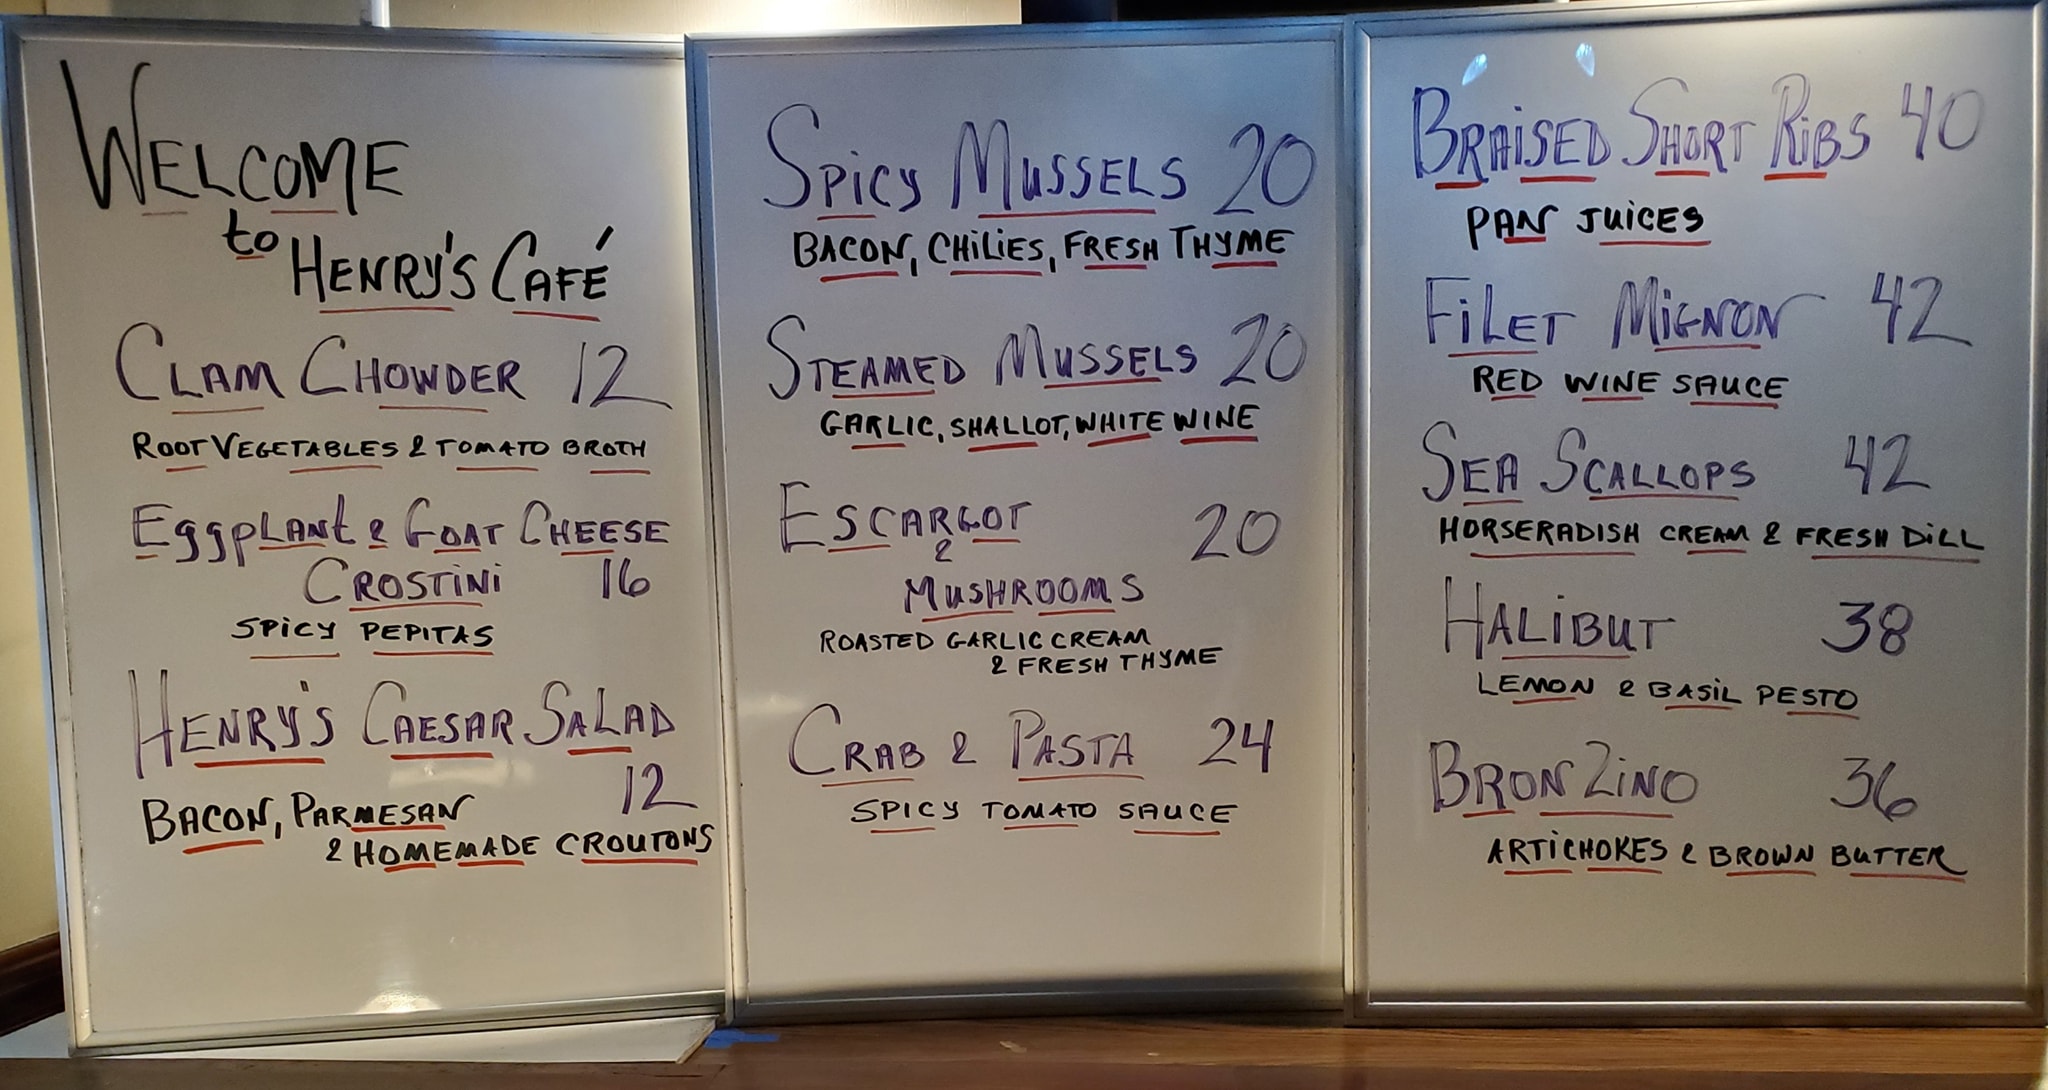 WELCOME
to
HENRY'S CAFÉ
CLAM CHOWDER 12
ROOT VEGETABLES & TOMATO BROTH
EggpLANt & GOAT CHEESE
CROSTINI 16
SPICY PEPITAS
HENRY'S CAESAR SALAD
12
BACON, PARMESAN
& HOMEMADE CROUTONS
SPICY MUSSELS 20
BACON, CHILIES, FRESH THYME
STEAMED MUSSELS 20
GARLIC, SHALLOT, WHITE WINE
ESCARGOT 20
&
MUSHROOMS
ROASTED GARLIC CREAM
& FRESH THYME
CRAB & PASTA 24
SPICY TOMATO SAUCE
BRAISED SHORT RIBS 40
PAN JUICES
FILET MIGNON 42
RED WINE SAUCE
SEA SCALLOPS 42
HORSERADISH CREAM & FRESH DILL
HALIBUT 38
LEMON & BASIL PESTO
BRONZINO 36
ARTICHOKES & BROWN BUTTER